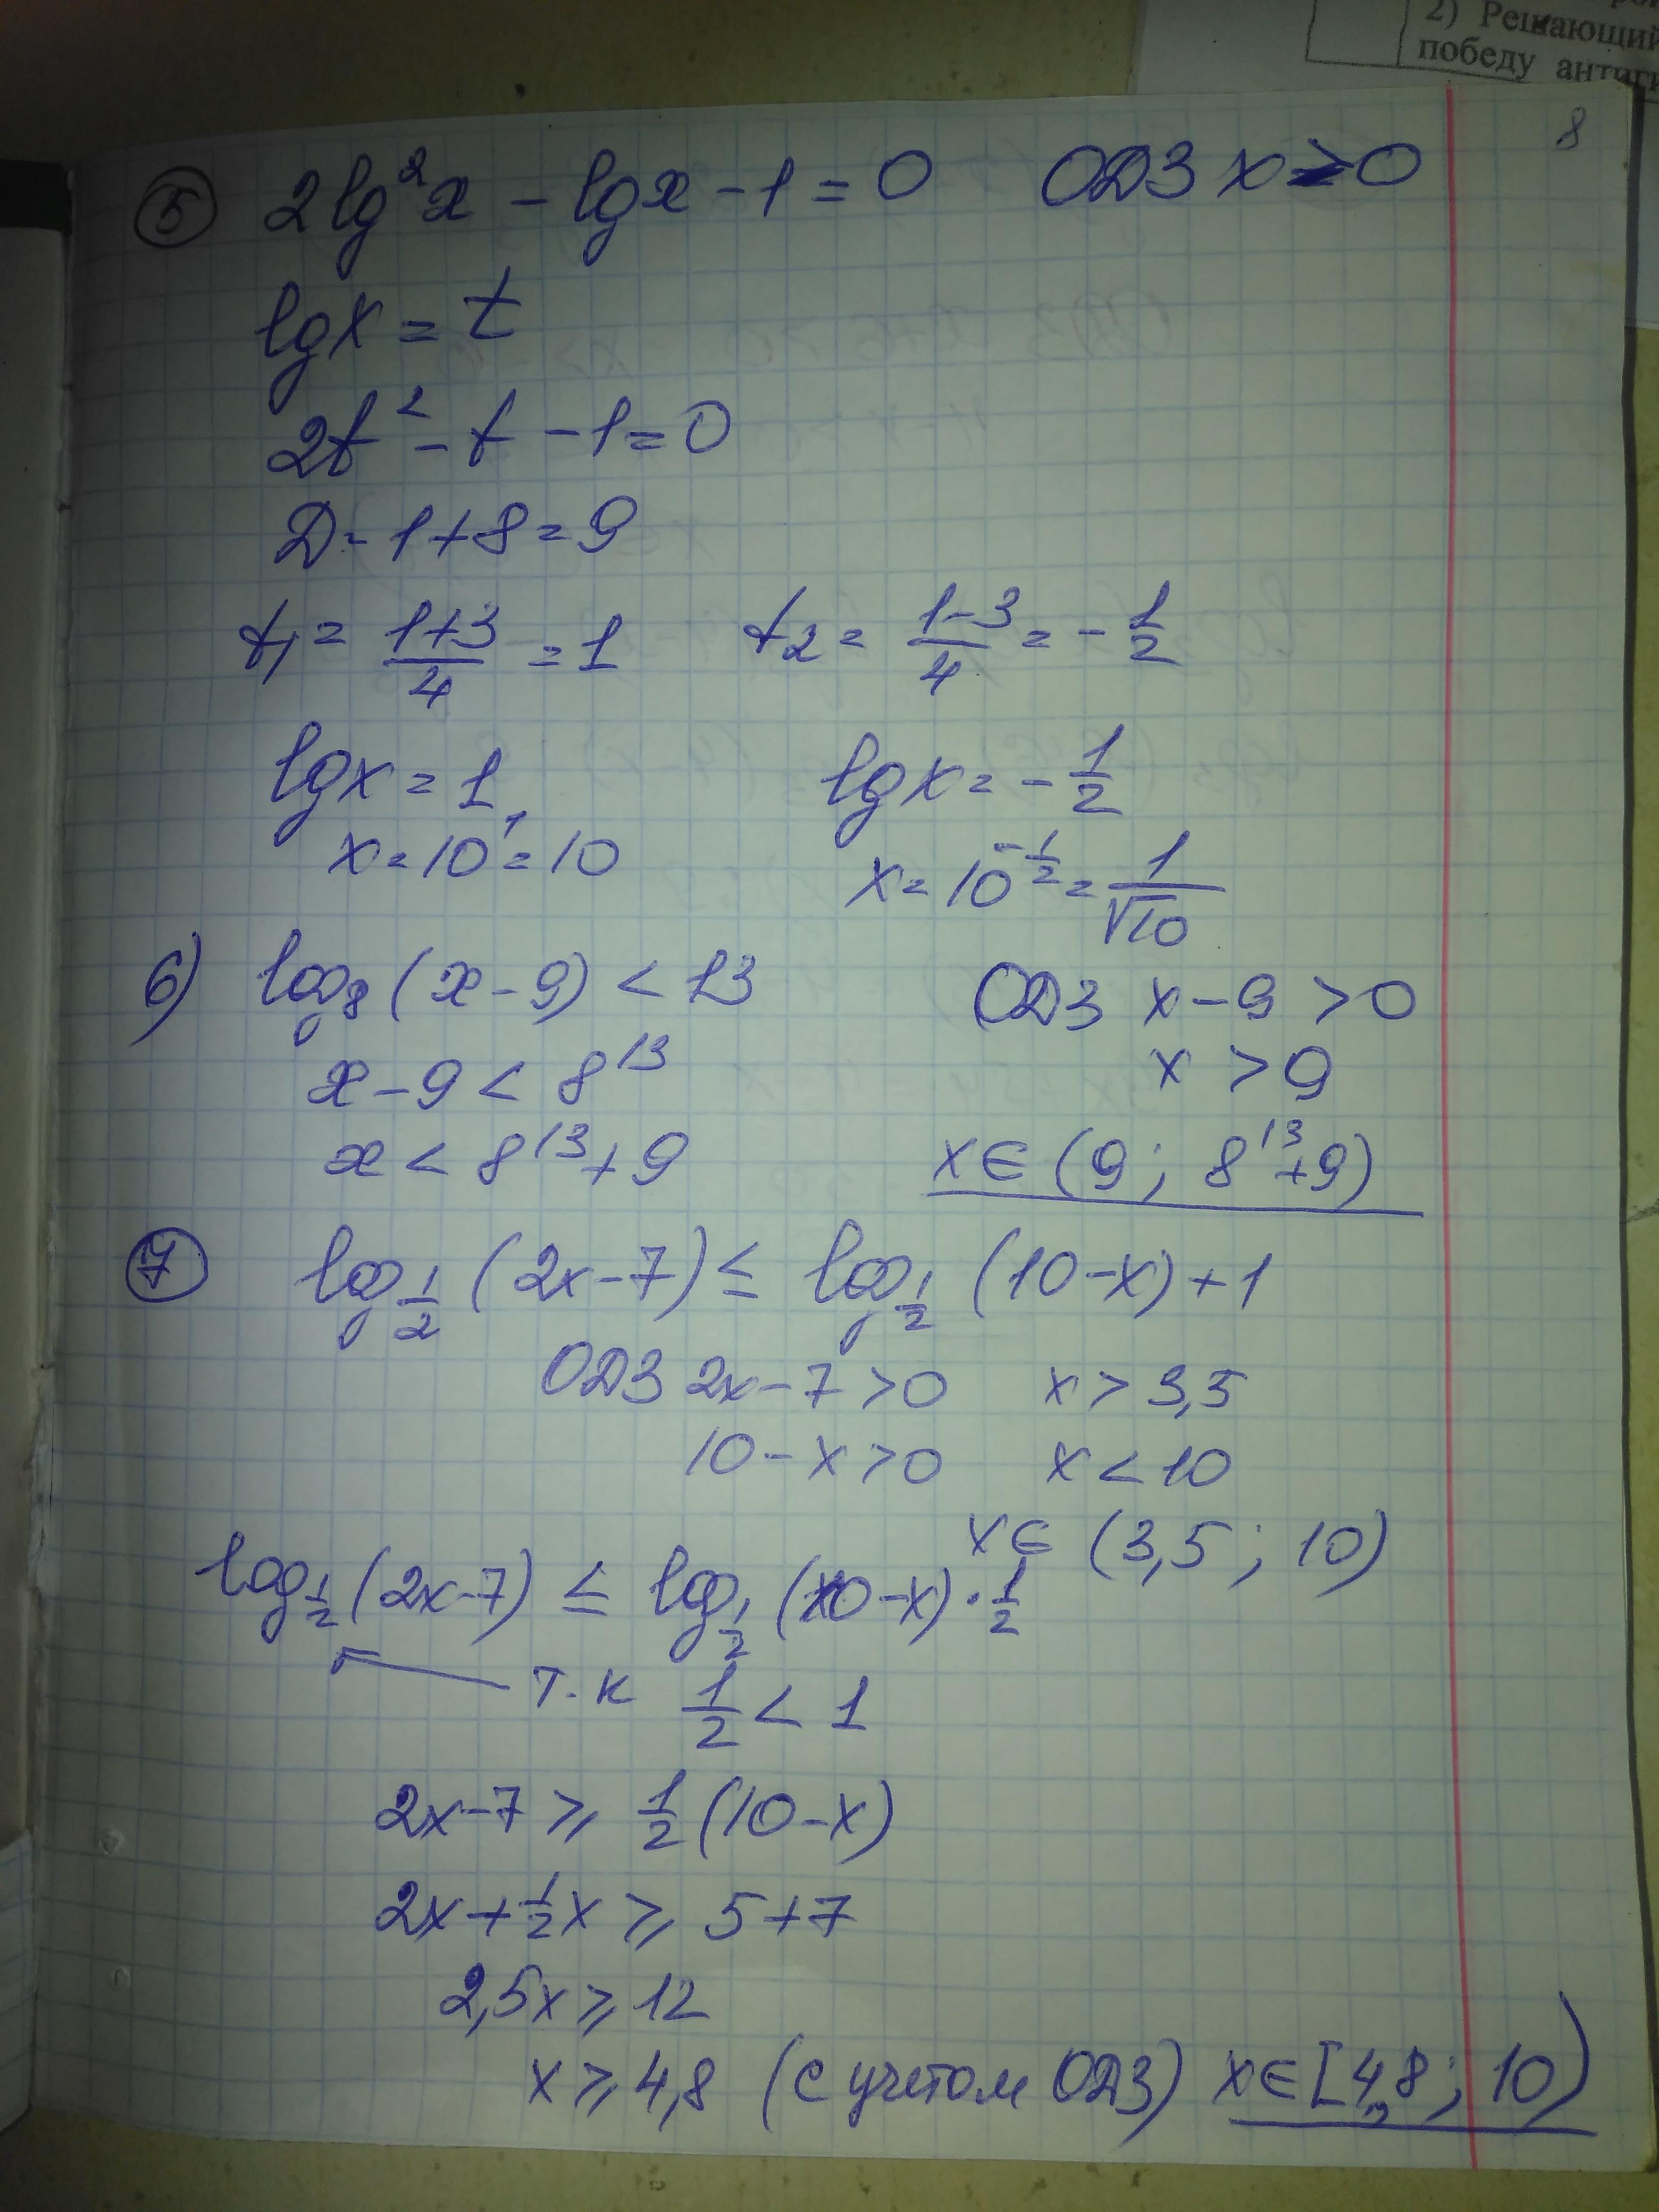 2) Решающий
победу
8
⑤ 2lg²x - lgx - 1 = 0 ОДЗ x > 0
lgx = t
2t² - t - 1 = 0
Д = 1 + 8 = 9
t₁ = (1+3)/4 = 1 t₂ = (1-3)/4 = - 1/2
lgx = 1 lgx = - 1/2
x = 10¹ = 10 x = 10^(-1/2) = 1/√10
6) log₈(x - 9) < 13 ОДЗ x - 9 > 0
x - 9 < 8¹³ x > 9
x < 8¹³ + 9 x ∈ (9; 8¹³+9)
⑦ log_(1/2) (2x - 7) ≤ log_(1/2) (10 - x) + 1
ОДЗ 2x - 7 > 0 x > 3,5
10 - x > 0 x < 10
x ∈ (3,5; 10)
log_(1/2) (2x-7) ≤ log_(1/2) (10 - x) · 1/2
т.к 1/2 < 1
2x - 7 ⩾ 1/2 (10 - x)
2x + 1/2 x ⩾ 5 + 7
2,5x ⩾ 12
x ⩾ 4,8 (с учетом ОДЗ) x ∈ [4,8; 10)